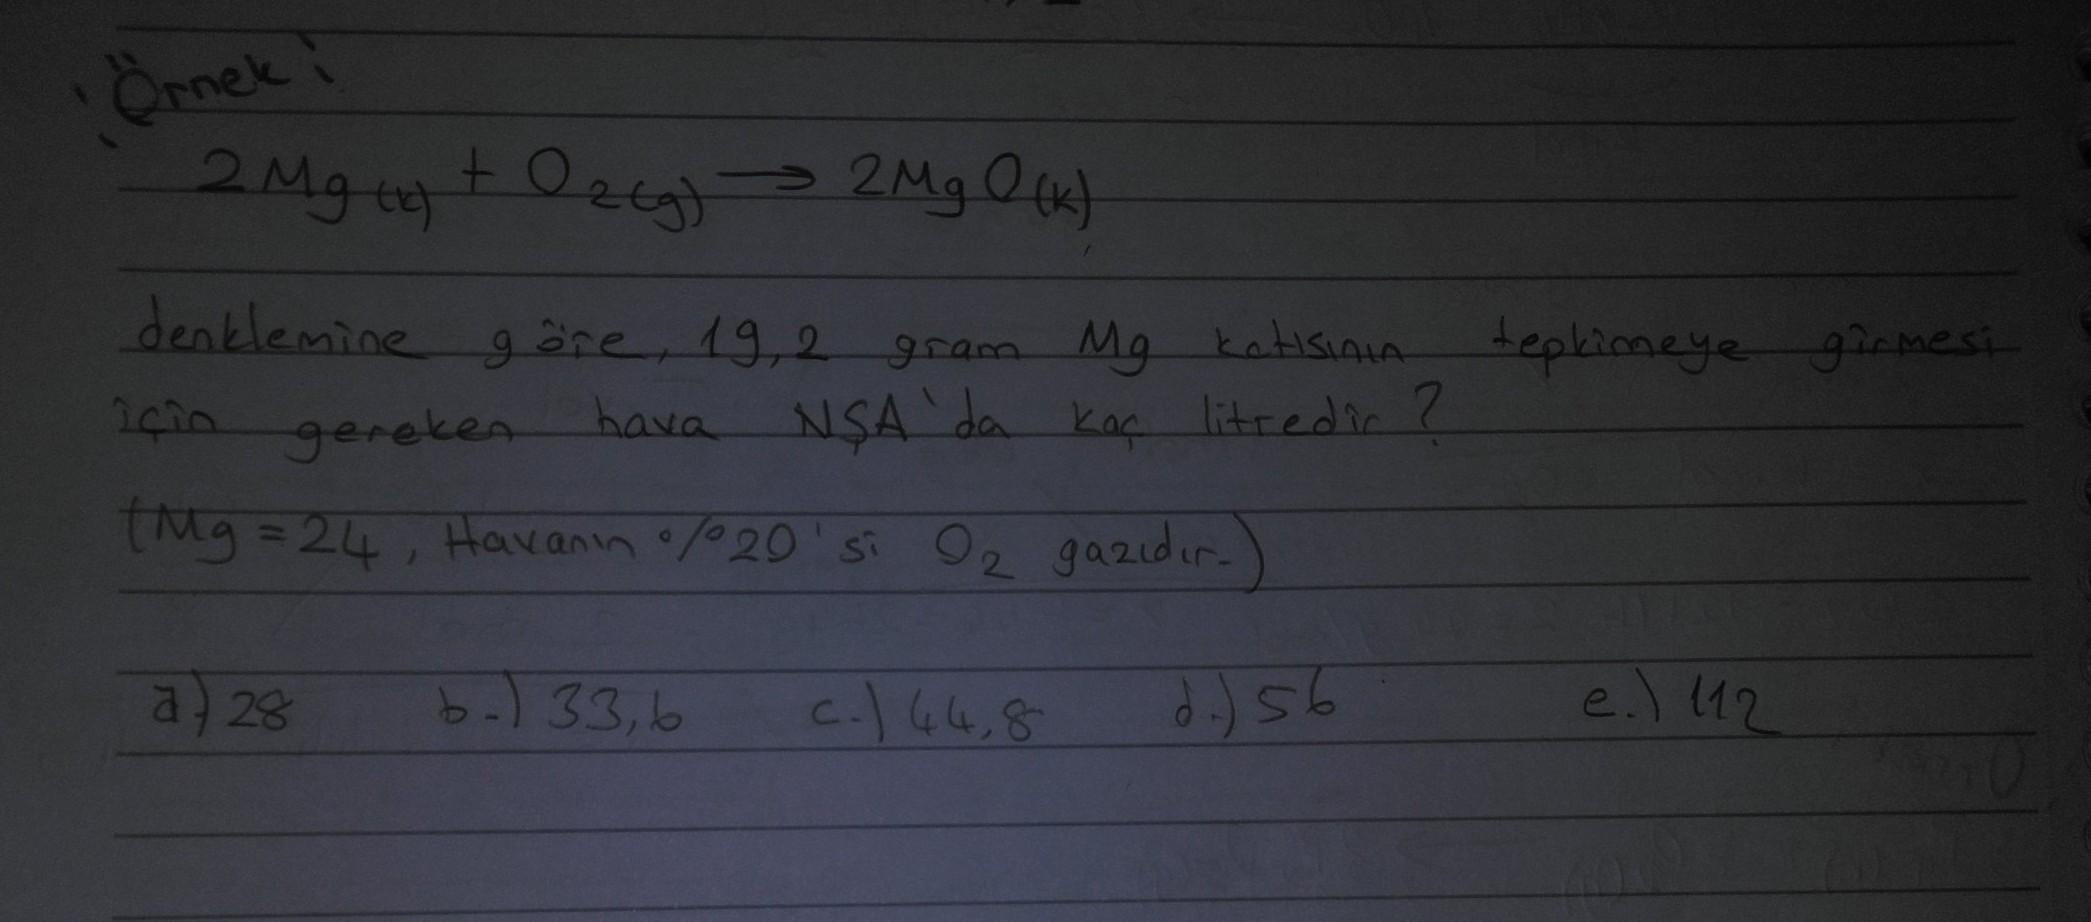 Örnek:
2Mg(k) + O₂(g) → 2MgO(k)
denklemine göre, 19,2 gram Mg katısının tepkimeye girmesi
için gereken hava NŞA'da kaç litredir?
(Mg = 24, Havanın %20'si O₂ gazıdır.)
a) 28 b.) 33,6 c.) 44,8 d.) 56 e.) 112